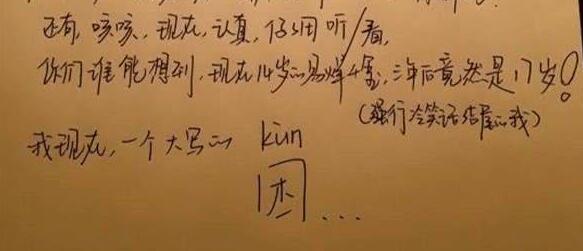 还有,咳咳,现在,认真,仔细听/看,
你们谁能想到,现在14岁的易烊千玺,三年后竟然是17岁!
(强行冷笑话结尾的我)
我现在,一个大写的 kùn
困...